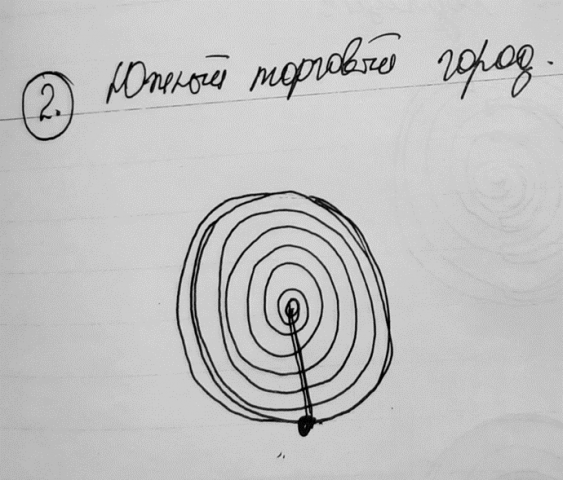 2. Южный торговый город.